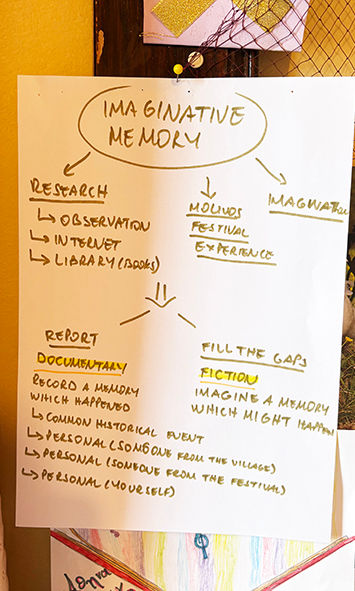 IMAGINATIVE
MEMORY
RESEARCH
↳ OBSERVATION
↳ INTERNET
↳ LIBRARY (BOOKS)
MOLIVOS
FESTIVAL
EXPERIENCE
IMAGINATION
REPORT
DOCUMENTARY
RECORD A MEMORY
WHICH HAPPENED
↳ COMMON HISTORICAL EVENT
↳ PERSONAL (SOMEONE FROM THE VILLAGE)
↳ PERSONAL (SOMEONE FROM THE FESTIVAL)
↳ PERSONAL (YOURSELF)
FILL THE GAPS
FICTION
IMAGINE A MEMORY
WHICH MIGHT HAPPEN